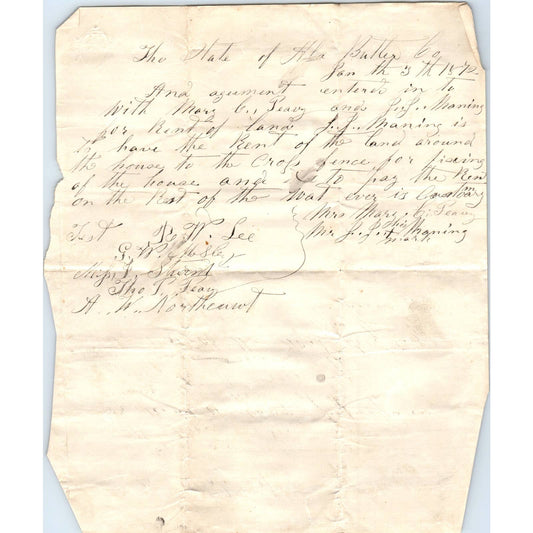 The State of Ala Butler Co
Jan th 3 th 187
And agument enterds in to
With Mary C. Peavy ands J. J. Maning
for Rent of land J. J. Maning is
to have the Rent of the land around
the house to the Cross fence for fixing
of the house and is to pay the Ren
on the Rest of the What ever is Customary
Mrs Mary C. Peavy
Mr J. J. his Maning
mark
Test W. Lee
G. W.
Thos Peavy
A. W. Northcutt